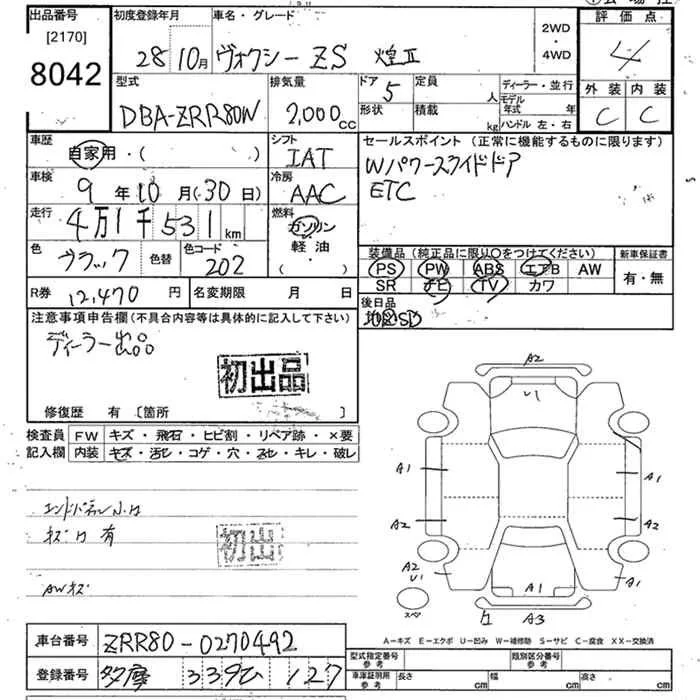 出品番号 初度登録年月 車名・グレード 2WD・4WD 評価点
[2170]
8042 28 10月 ヴォクシー ZS 煌Ⅱ 4
型式 排気量 ドア 5 定員 人 ディーラー・並行 外装 内装
DBA-ZRR80W 2,000cc 形状 積載 kg モデル年式 年 C C
ハンドル 左・右
車歴 自家用・( ) シフト IAT セールスポイント (正常に機能するものに限ります)
車検 9年10月(・30日) 冷房 AAC Wパワースライドドア
ETC
走行 4万1千531km 燃料 ガソリン 軽油・( )
色 ブラック 色替 色コード 202 装備品 (純正品に限り○をつけてください) 新車保証書
PS PW ABS エアB AW 有・無
SR ナビ TV カワ
R券 12,470円 名変期限 月 日 後日品
注意事項申告欄 (不具合内容等は具体的に記入して下さい)
ディーラー出品
初出品
修復歴 有 [箇所 ]
検査員 FW キズ・飛石・ヒビ割・リペア跡・×要
記入欄 内装 キズ・汚ヒ・コゲ・穴・スセ・キレ・破レ
エンドパネル小凹
キズ凹有
初出
AWキズ
A2
U1
A1 A1
A2 A2
A2
U1 A1 A1
スペア A3
A-キズ E-エクボ U-凹み W-補修跡 S-サビ C-腐食 XX-交換済
車台番号 ZRR80-0270492 型式指定番号 参考 類別区分番号 参考
登録番号 多摩 339ひ 127 車庫証明用 参考 長さ cm 幅 cm 高さ cm